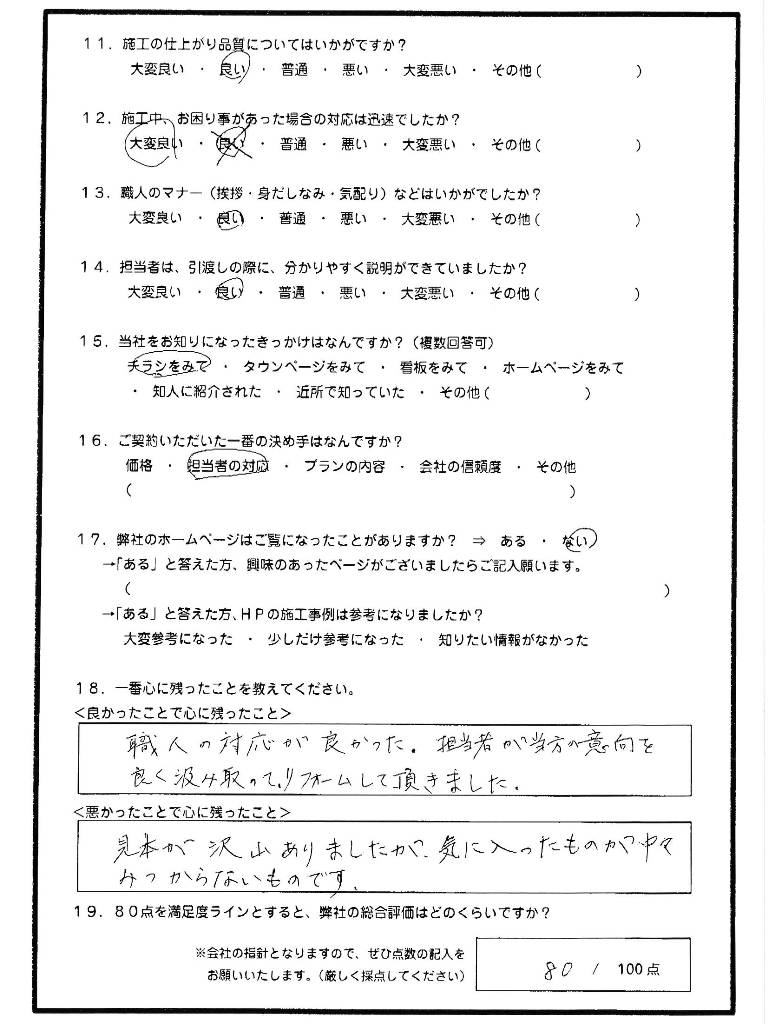 11．施工の仕上がり品質についてはいかがですか？
大変良い ・ 良い ・ 普通 ・ 悪い ・ 大変悪い ・ その他（　　　　　　）
12．施工中、お困り事があった場合の対応は迅速でしたか？
大変良い ・ 良い ・ 普通 ・ 悪い ・ 大変悪い ・ その他（　　　　　　）
13．職人のマナー（挨拶・身だしなみ・気配り）などはいかがでしたか？
大変良い ・ 良い ・ 普通 ・ 悪い ・ 大変悪い ・ その他（　　　　　　）
14．担当者は、引渡しの際に、分かりやすく説明ができていましたか？
大変良い ・ 良い ・ 普通 ・ 悪い ・ 大変悪い ・ その他（　　　　　　）
15．当社をお知りになったきっかけはなんですか？（複数回答可）
チラシをみて ・ タウンページをみて ・ 看板をみて ・ ホームページをみて
・ 知人に紹介された ・ 近所で知っていた ・ その他（　　　　　　）
16．ご契約いただいた一番の決め手はなんですか？
価格 ・ 担当者の対応 ・ プランの内容 ・ 会社の信頼度 ・ その他
（　　　　　　）
17．弊社のホームページはご覧になったことがありますか？ ⇒ ある ・ ない
→「ある」と答えた方、興味のあったページがございましたらご記入願います。
（　　　　　　）
→「ある」と答えた方、ＨＰの施工事例は参考になりましたか？
大変参考になった ・ 少しだけ参考になった ・ 知りたい情報がなかった
18．一番心に残ったことを教えてください。
＜良かったことで心に残ったこと＞
職人の対応が良かった。担当者が当方の意向を
良く汲み取って、リフォームして頂きました。
＜悪かったことで心に残ったこと＞
見本が沢山ありましたが、気に入ったものが中々
みつからないものです。
19．80点を満足度ラインとすると、弊社の総合評価はどのくらいですか？
※会社の指針となりますので、ぜひ点数の記入を
お願いいたします。（厳しく採点してください）
80 / 100点